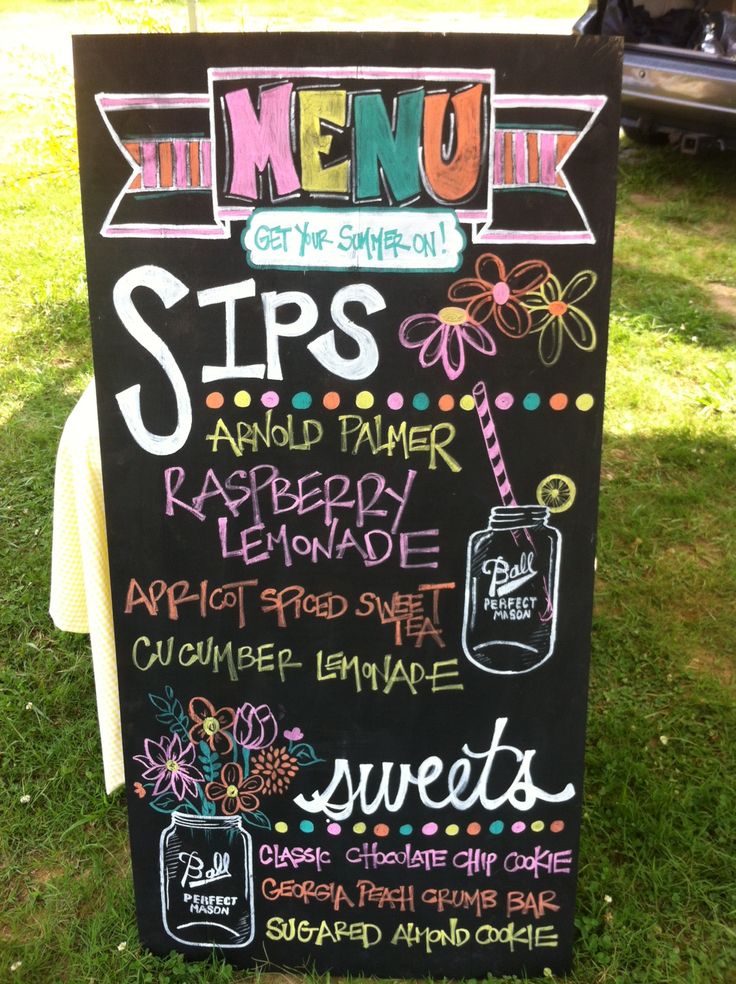 MENU
GET YOUR SUMMER ON!
SIPS
ARNOLD PALMER
RASPBERRY
LEMONADE
APRICOT SPICED SWEET
TEA
CUCUMBER LEMONADE
Ball
PERFECT
MASON
sweets
CLASSIC CHOCOLATE CHIP COOKIE
GEORGIA PEACH CRUMB BAR
SUGARED ALMOND COOKIE
Ball
PERFECT
MASON